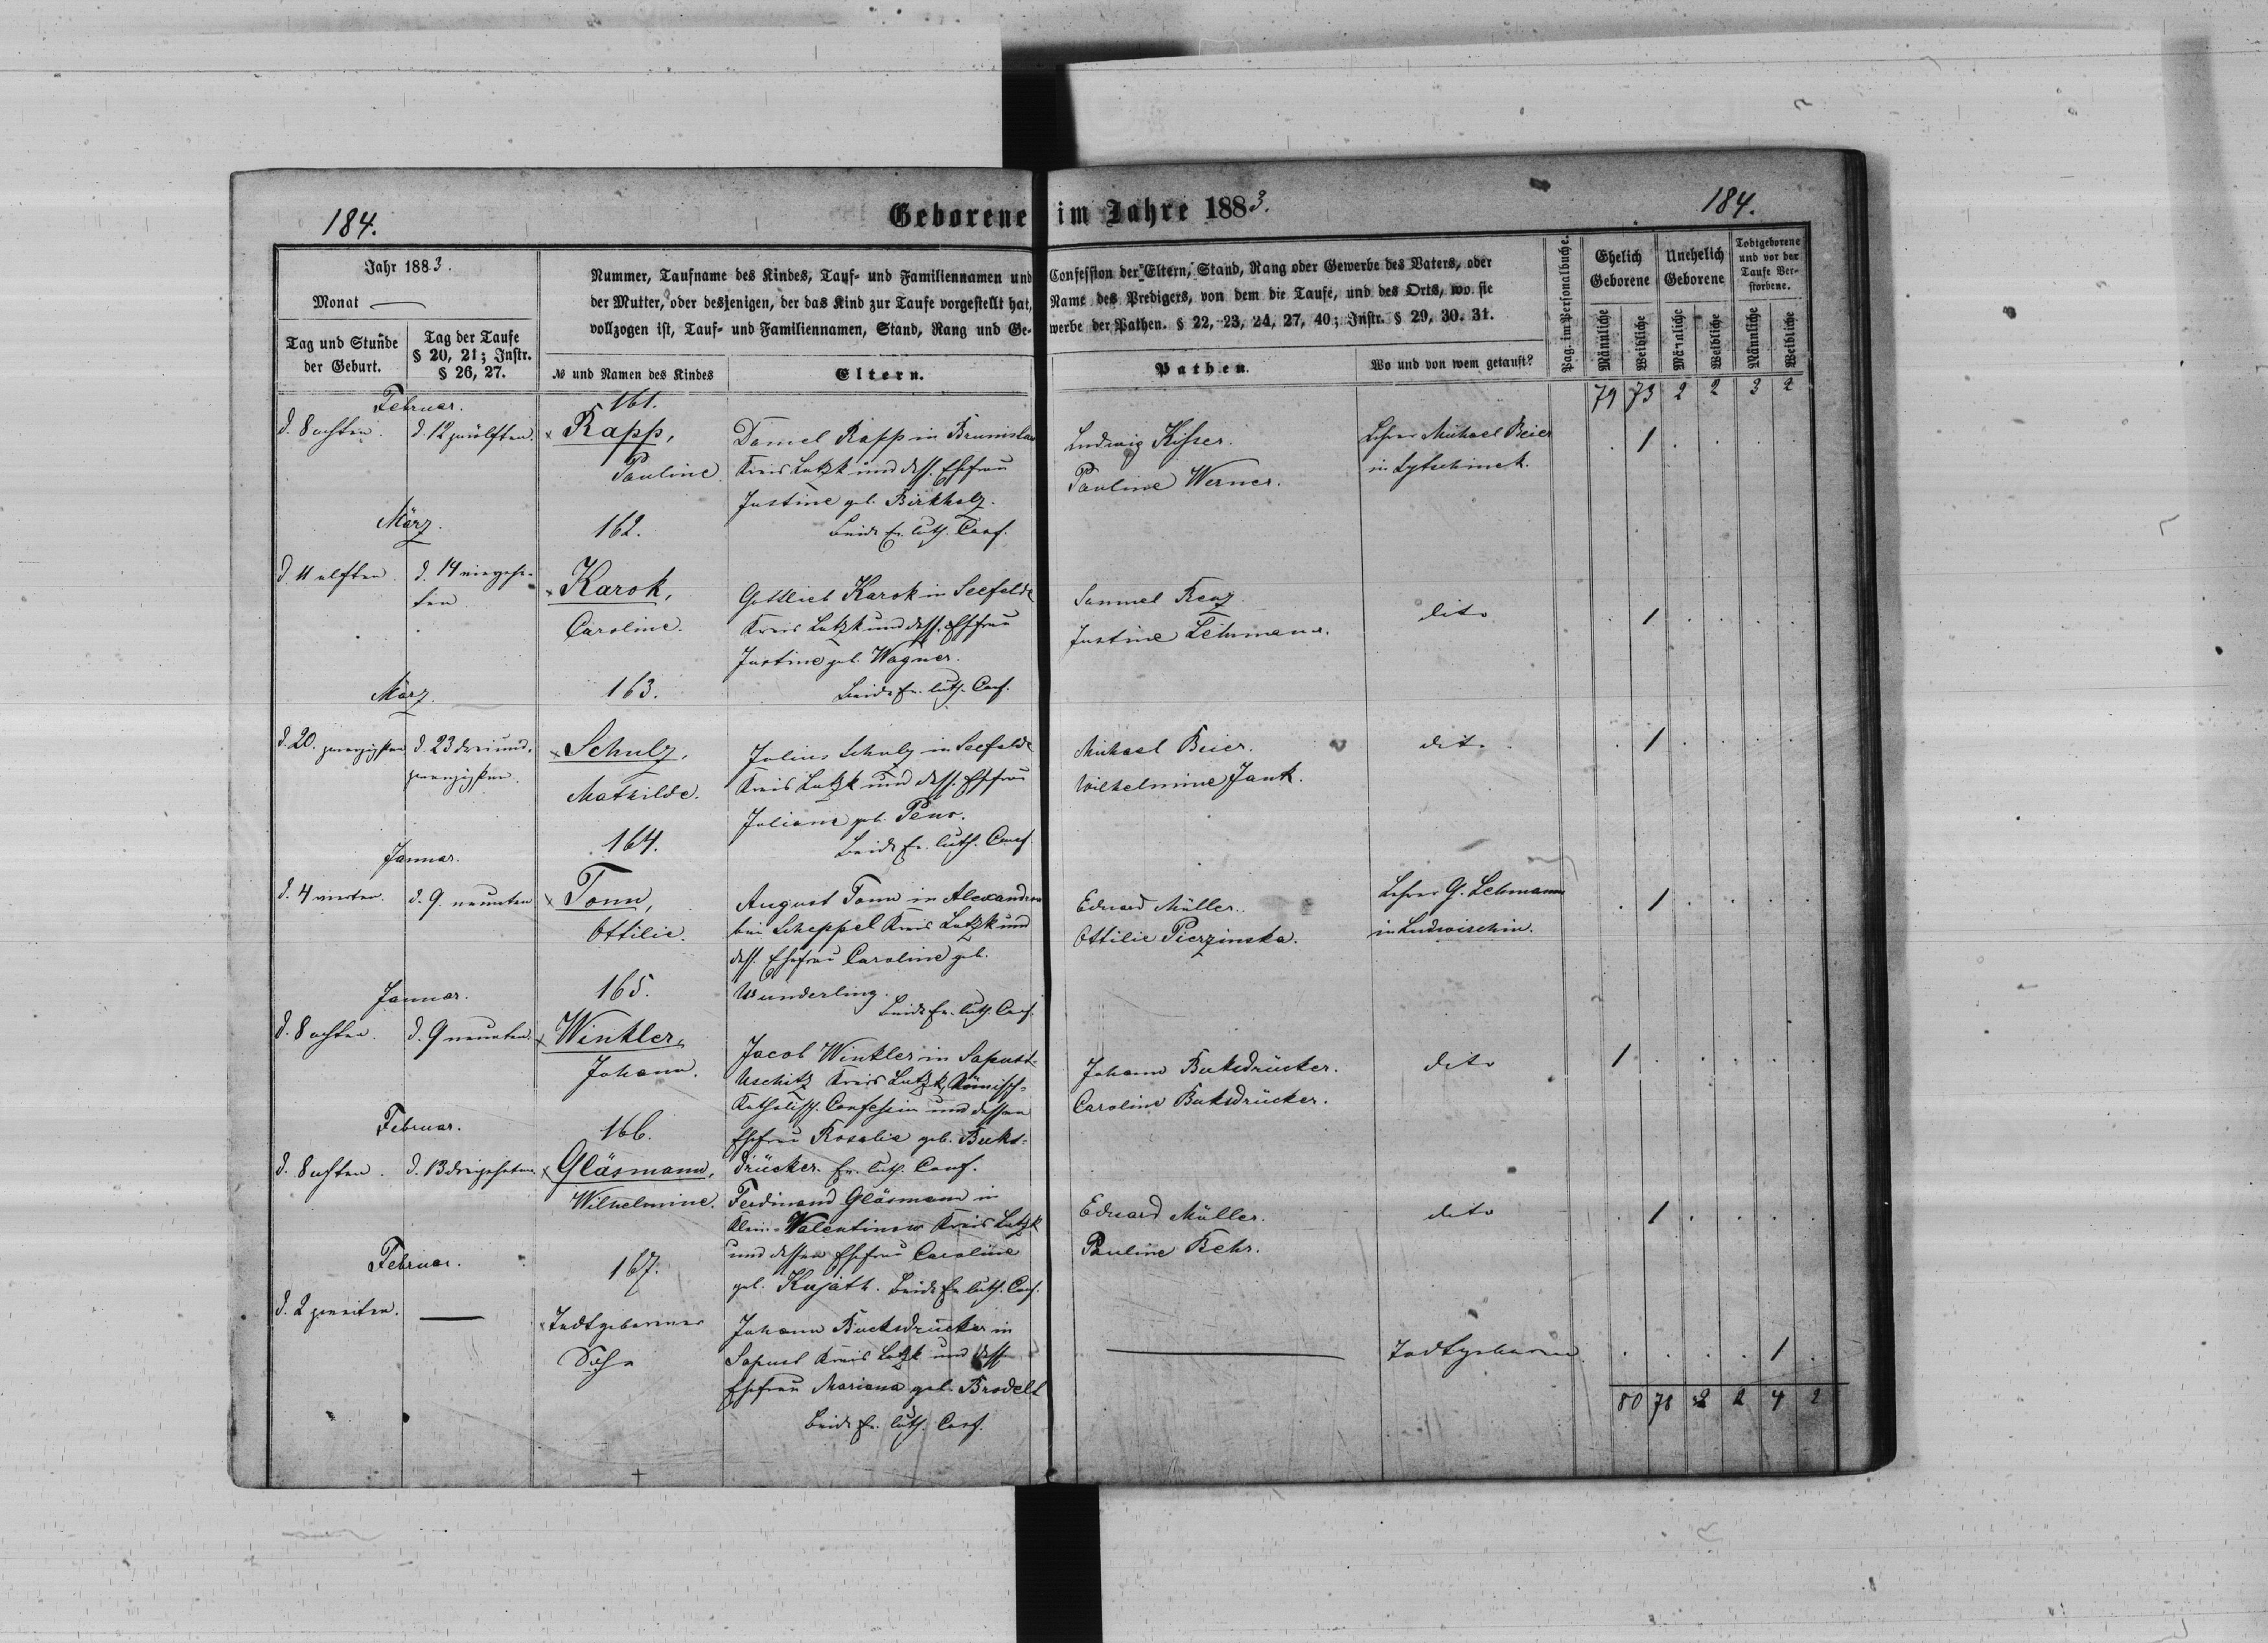 184.
Geborene im Jahre 1883.
184.
Jahr 1883.
Monat
Tag und Stunde der Geburt.
Tag der Taufe § 20, 21; Instr. § 26, 27.
Nummer, Taufname des Kindes, Tauf- und Familiennamen und Confession der Eltern, Stand, Rang oder Gewerbe des Vaters, oder
der Mutter, oder desjenigen, der das Kind zur Taufe vorgestellt hat, Name des Predigers, von dem die Taufe, und des Orts, wo sie
vollzogen ist, Tauf- und Familiennamen, Stand, Rang und Gewerbe der Pathen. § 22, 23, 24, 27, 40; Instr. § 29, 30. 31.
№ und Namen des Kindes
Eltern.
Pathen.
Wo und von wem getauft?
Pag. im Personalbuche.
Ehelich Geborene
Unehelich Geborene
Todtgeborene und vor der Taufe Verstorbene.
Männliche
Weibliche
Männliche
Weibliche
Männliche
Weibliche
79 73 2 2 3 2
Februar.
161.
d. 8 achten.
d. 12 zwölften.
Rapp,
Pauline.
Daniel Rapp in Brunislaw
Kreis Lutzk und dess. Ehefrau
Justine geb. Birkholz.
Beide Ev. luth. Conf.
Ludwig Kisser.
Pauline Werner.
Lehrer Michael Beier
in Lytschinek.
1
März.
162.
d. 11 elften.
d. 14 vierzehnten
Karok,
Caroline.
Gottlieb Karok in Seefelde
Kreis Lutzk und dess. Ehefrau
Justine geb. Wagner.
Beide Ev. luth. Conf.
Samuel Renz
Justine Lehmann.
dito
1
März.
163.
d. 20. zwanzigsten
d. 23 dreiundzwanzigsten.
Schulz,
Mathilde.
Julius Schulz in Seefelde
Kreis Lutzk und dess. Ehefrau
Juliane geb. Penno.
Beide Ev. luth. Conf.
Michael Beier.
Wilhelmine Jank.
dito.
1
Januar.
164.
d. 4 vierten.
d. 9 neunten
Tonn,
Ottilie.
August Tonn in Alexandrow
bei Scheppel Kreis Lutzk und
dess. Ehefrau Caroline geb.
Wunderling.
Beide Ev. luth. Conf.
Eduard Müller.
Ottilie Pierzinska.
Lehrer G. Lehmann
in Ludwischin.
1
Januar.
165.
d. 8 achten.
d. 9 neunten.
Winkler,
Johann.
Jacob Winkler in Sapust-
Uschitz Kreis Lutzk, Römisch-
Katholisch. Confession und dessen
Ehefrau Rosalie geb. Buks-
drücker. Ev. luth. Conf.
Johann Buksdrücker.
Caroline Buksdrücker.
dito
1
Februar.
166.
d. 8 achten.
d. 13 dreizehnten.
Gläsmann,
Wilhelmine.
Ferdinand Gläsmann in
Klein-Valentinow Kreis Lutzk
und dessen Ehefrau Caroline
geb. Kujath. Beide Ev. luth. Conf.
Eduard Müller.
Pauline Fehr.
dito
1
Februar.
167.
d. 2 zweiten.
Todtgeborener
Sohn
Johann Bucksdrücker in
Sapust Kreis Lutzk und dess
Ehefrau Mariana geb. Brodelt
Beide Ev. luth. Conf.
Todtgeboren.
1
80 78 2 2 4 2